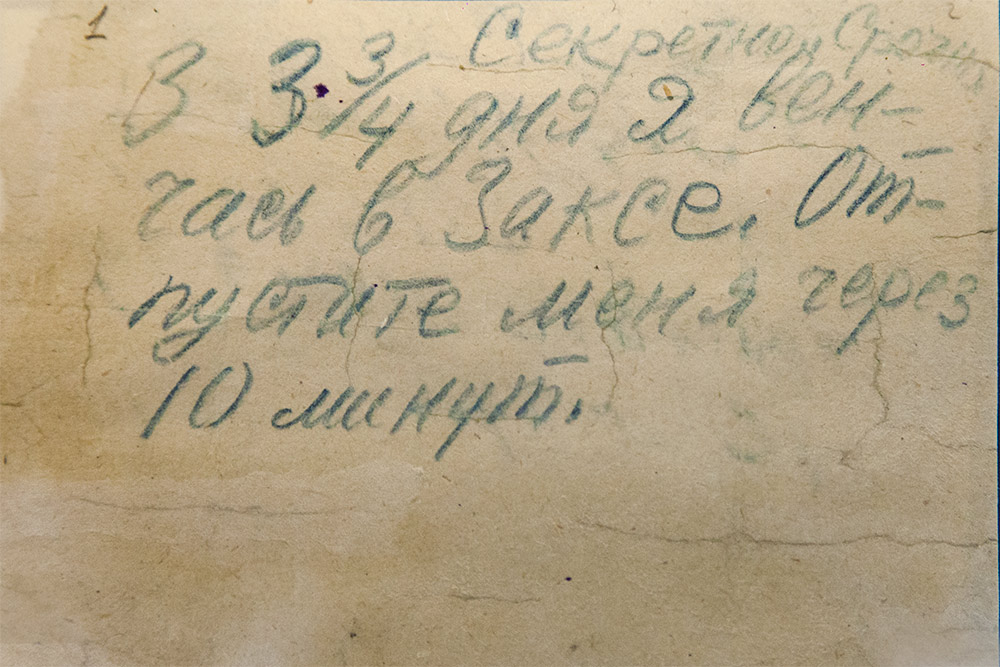 1
Секретно, Срочно
В 3 3/4 дня я вен-
чась в Заксе. От-
пустите меня через
10 минут.